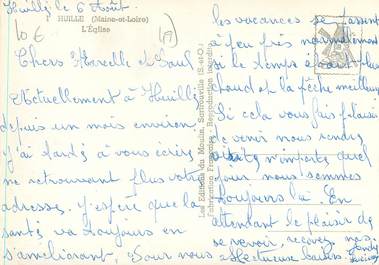 Huillé le 6 Août
1 HUILLÉ (Maine-et-Loire)
L'Église
10 €
Chers Marcelle et Paul
Actuellement à Huillé
depuis un mois environ
j'ai tardé à vous écrire
ne retrouvant plus votre
adresse. J'espère que la
santé va toujours en
s'améliorant, Pour nous
les vacances se passent
à peu près normalement
le temps
chaud et la pêche meilleure
Si cela vous fais plaisir
de venir nous rendre
visite n'importe quel
jour nous sommes
toujours là. En
attendant le plaisir de
se revoir, recevez nos
affectueux baisers.
Les Editions du Moulin, Sartrouville (S.-et-O.)
Fabrication Française - Reproduction interdite